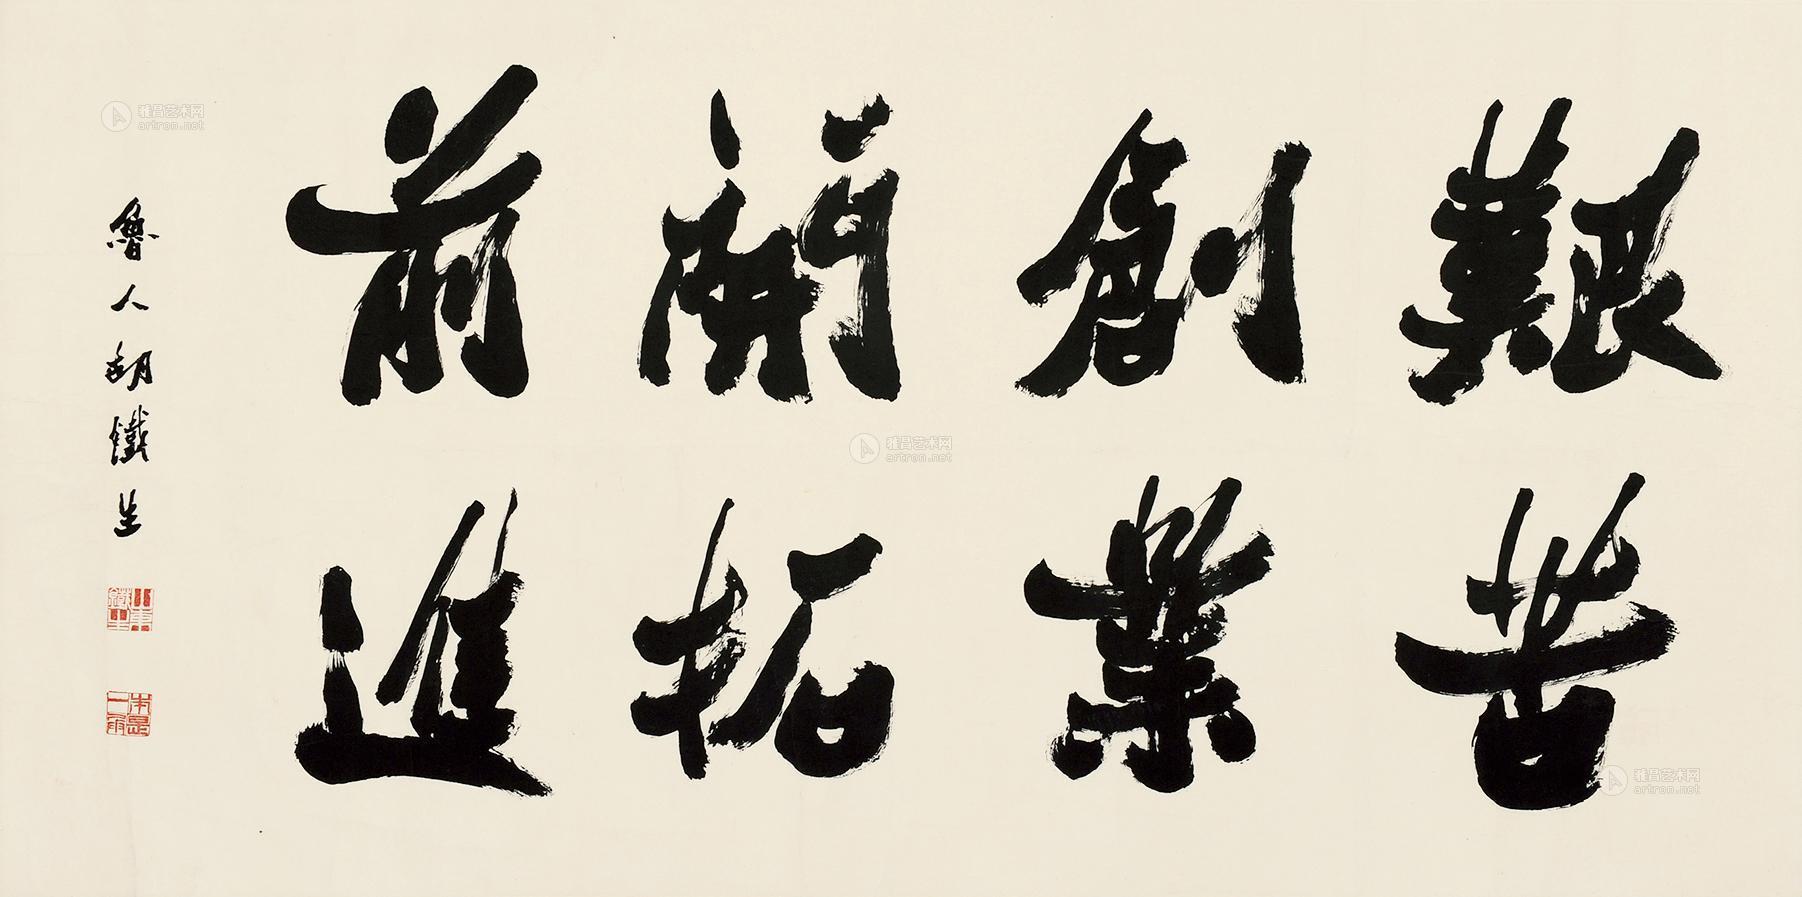 艱苦
創業
開拓
前進
魯人胡鐵生
山東
鐵生
雅昌艺术网
artron.net
雅昌艺术网
artron.net
雅昌艺术网
artron.net